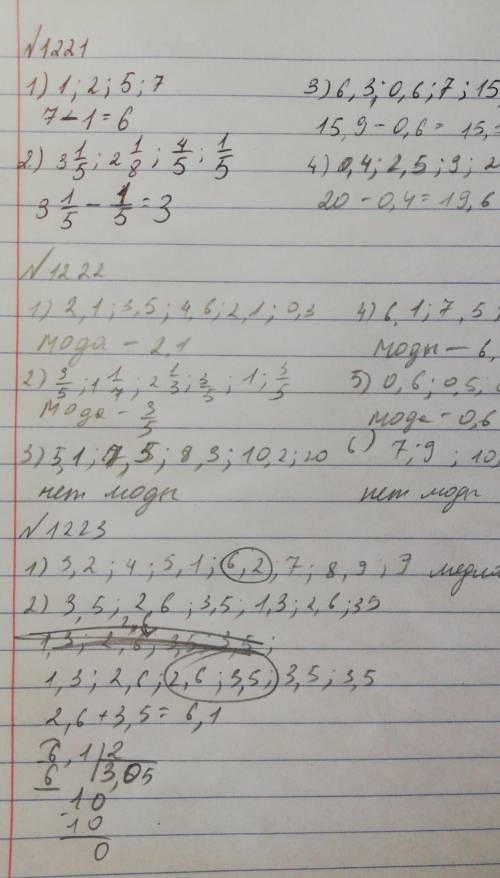 №1221
1) 1; 2; 5; 7
7-1=6
2) 3 1/5; 2 1/8; 4/5; 1/5
3 1/5 - 1/5 = 3
3) 6,3; 0,6; 7; 15
15,9-0,6= 15,
4) 0,4; 2,5; 9; 2
20-0,4=19,6
№1222
1) 2,1; 3,5; 4,6; 2,1; 0,3
мода - 2,1
2) 3/5; 1 1/7; 2 1/3; 3/5; 1; 3/5
мода - 3/5
3) 5,1; 7,5; 8,3; 10,2; 20
нет моды
4) 6,1; 7,5;
моды - 6,
5) 0,6; 0,5;
мода - 0,6
6) 7; 9; 10,
нет моды
№1223
1) 3,2; 4; 5,1; 6,2; 7; 8,9; 9 медиа
2) 3,5; 2,6; 3,5; 1,3; 2,6; 3,5
2,6
1,3; 2,6; 3,5; 3,5;
1,3; 2,6; 2,6; 3,5; 3,5; 3,5
2,6+3,5= 6,1
6,1 | 2
6 | 3,05
10
10
0